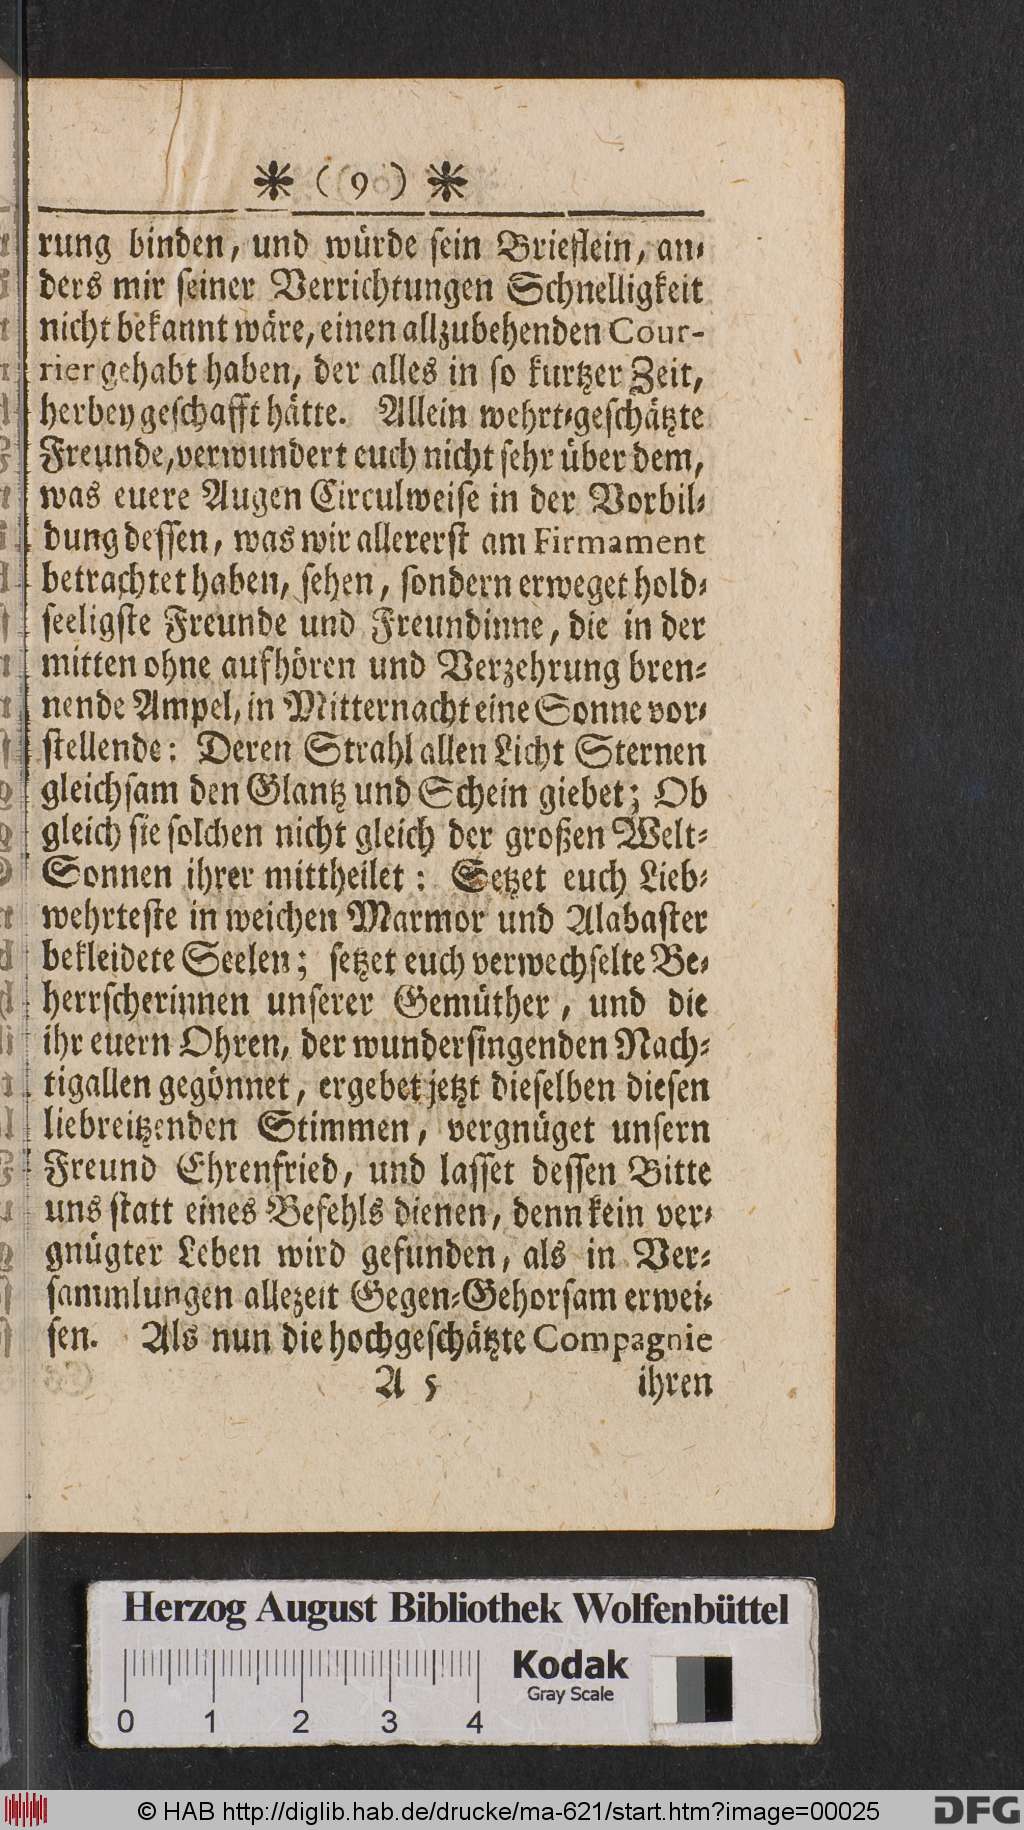 * ( 9 ) *
rung binden, und würde sein Brieflein, an-
ders mir seiner Verrichtungen Schnelligkeit
nicht bekannt wäre, einen allzubehenden Cour-
rier gehabt haben, der alles in so kurtzer Zeit,
herbey geschafft hätte. Allein wehrt-geschätzte
Freunde, verwundert euch nicht sehr über dem,
was euere Augen Circulweise in der Vorbil-
dung dessen, was wir allererst am Firmament
betrachtet haben, sehen, sondern erweget hold-
seeligste Freunde und Freundinne, die in der
mitten ohne aufhören und Verzehrung bren-
nende Ampel, in Mitternacht eine Sonne vor-
stellende: Deren Strahl allen Licht Sternen
gleichsam den Glantz und Schein giebet; Ob
gleich sie solchen nicht gleich der großen Welt-
Sonnen ihrer mittheilet: Setzet euch Lieb-
wehrteste in weichen Marmor und Alabaster
bekleidete Seelen; setzet euch verwechselte Be-
herrscherinnen unserer Gemüther, und die
ihr euern Ohren, der wundersingenden Nach-
tigallen gegönnet, ergebet jetzt dieselben diesen
liebreitzenden Stimmen, vergnüget unsern
Freund Ehrenfried, und lasset dessen Bitte
uns statt eines Befehls dienen, denn kein ver-
gnügter Leben wird gefunden, als in Ver-
sammlungen allezeit Gegen-Gehorsam erwei-
sen. Als nun die hochgeschätzte Compagnie
A 5 ihren
Herzog August Bibliothek Wolfenbüttel
Kodak
Gray Scale
0 1 2 3 4
© HAB http://diglib.hab.de/drucke/ma-621/start.htm?image=00025
DFG